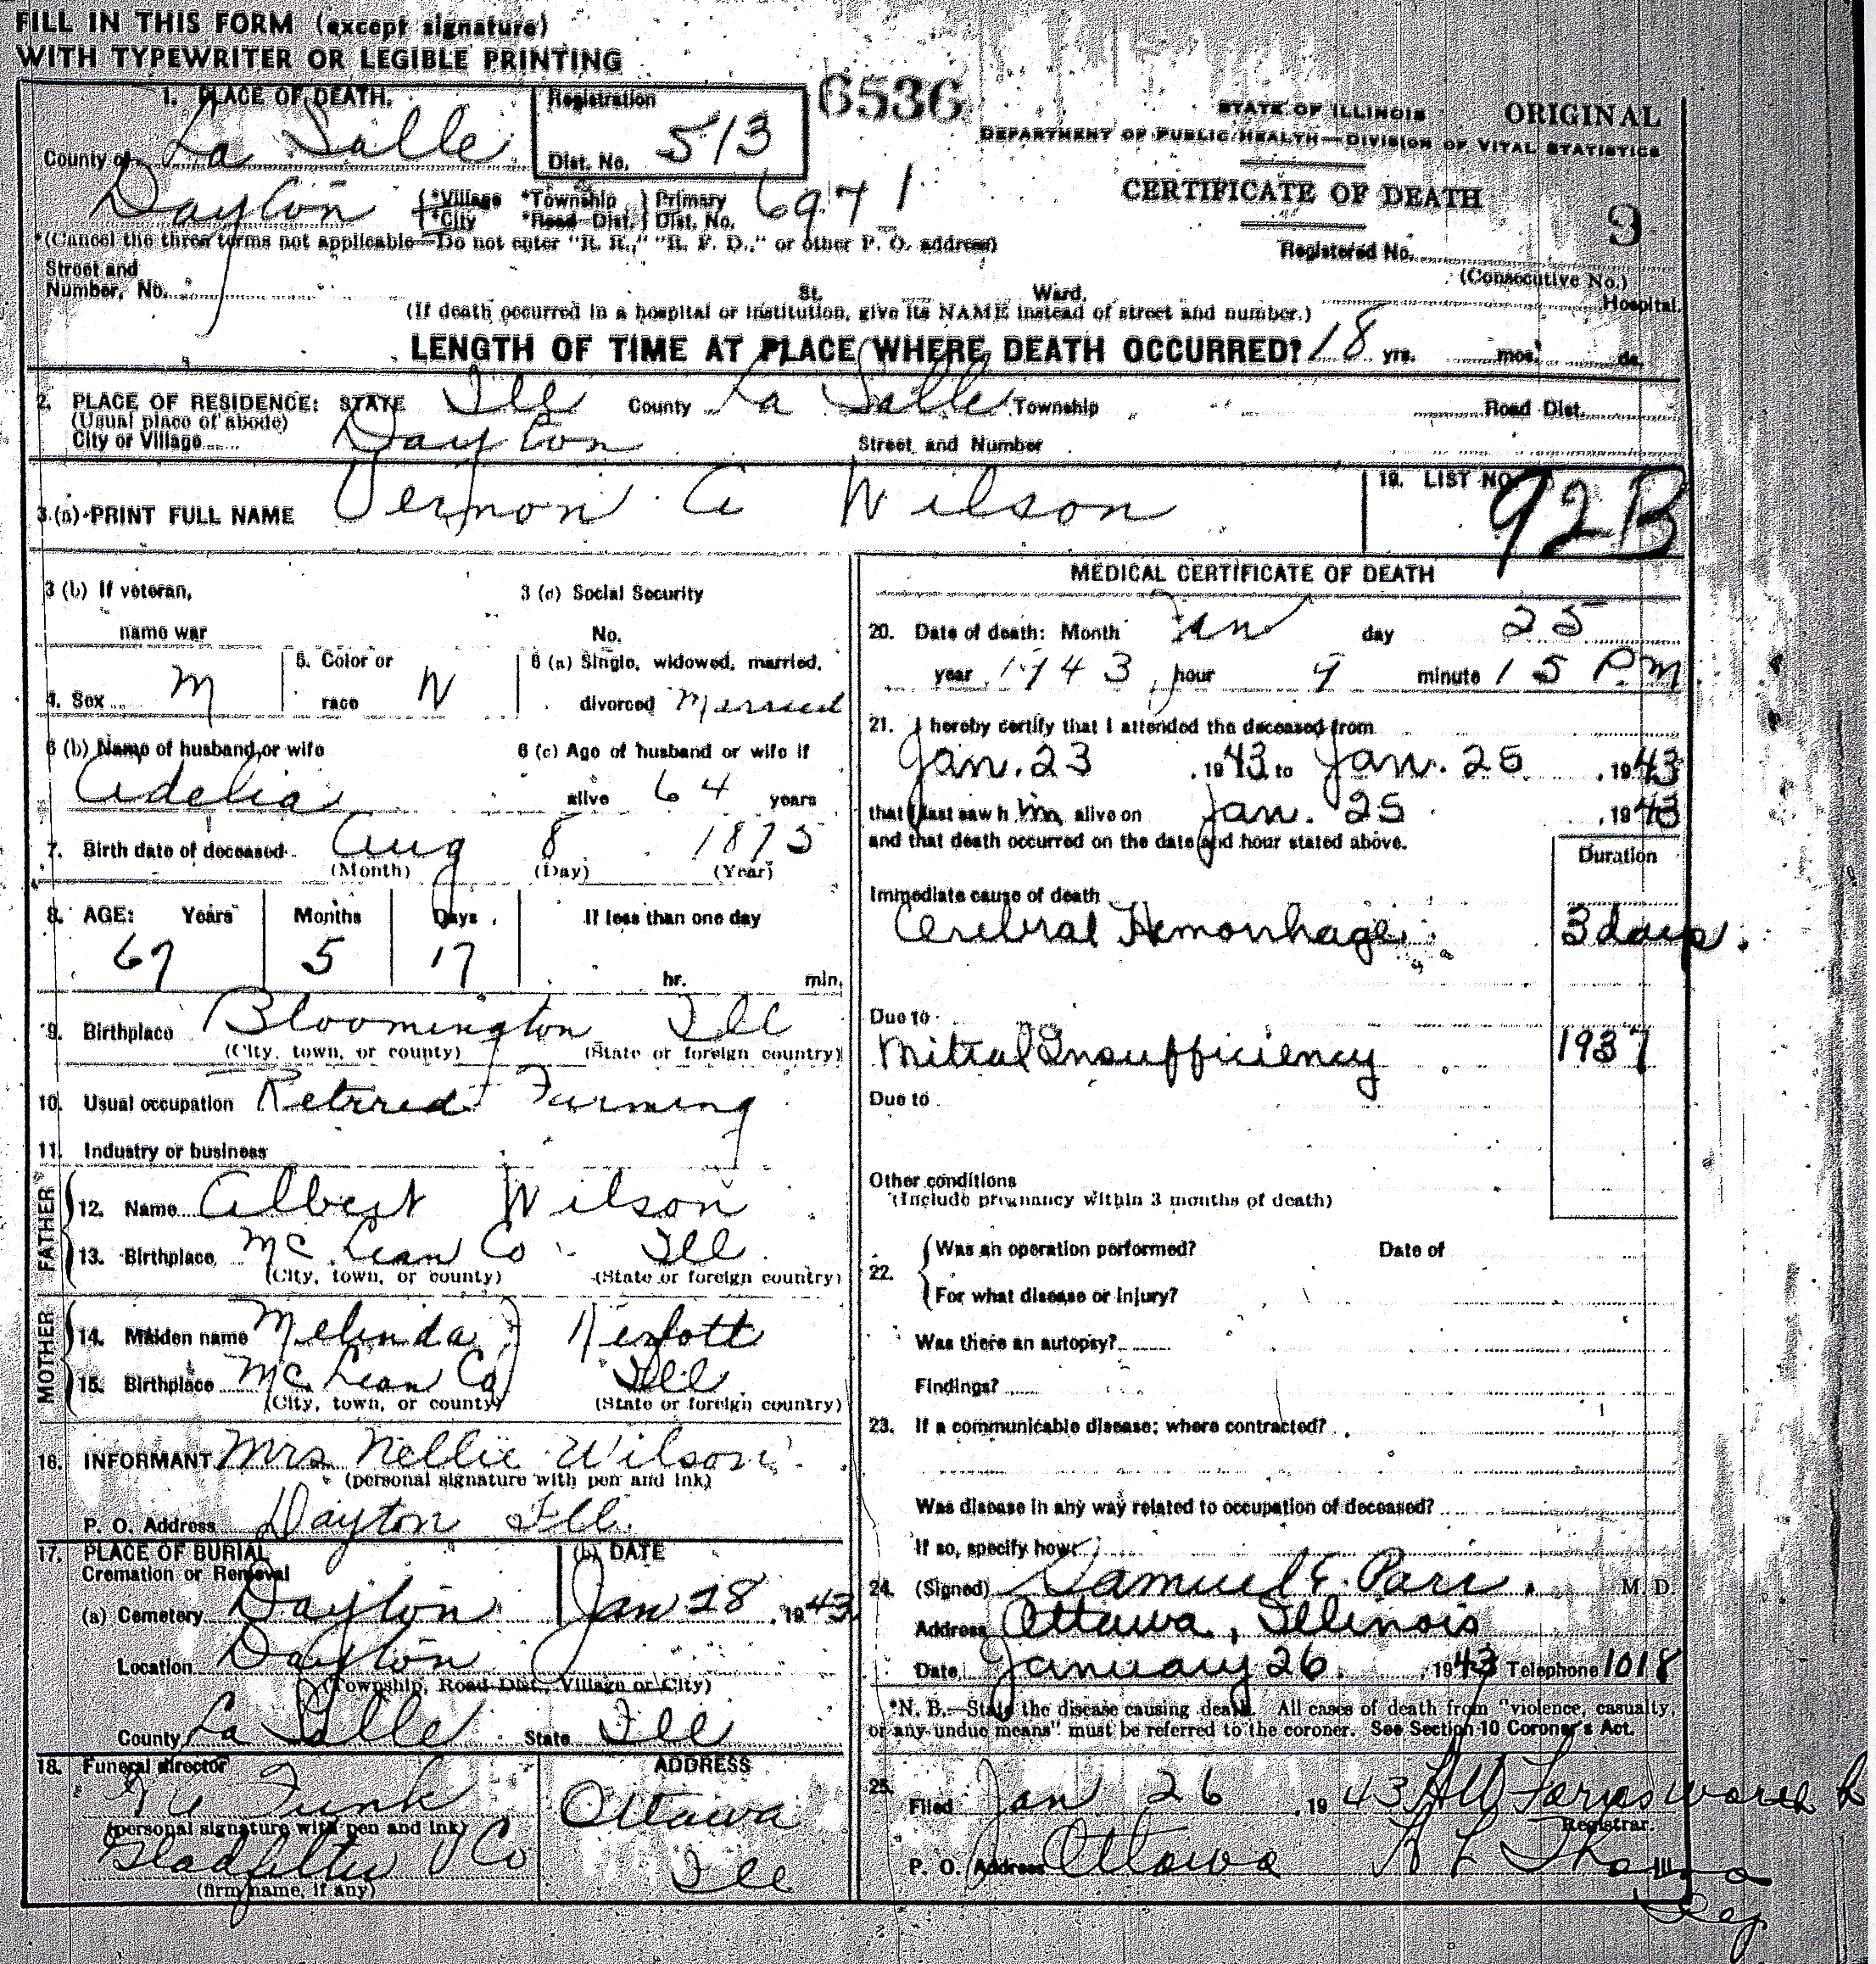 FILL IN THIS FORM (except signature)
WITH TYPEWRITER OR LEGIBLE PRINTING
1. PLACE OF DEATH.
County of La Salle
Registration
Dist. No. 513
6536
STATE OF ILLINOIS ORIGINAL
DEPARTMENT OF PUBLIC HEALTH—DIVISION OF VITAL STATISTICS
CERTIFICATE OF DEATH
Dayton {*Village *Township } Primary
*City *Road Dist. } Dist. No. 6971
*(Cancel the three terms not applicable—Do not enter "R. R.," "R. F. D.," or other P. O. address)
Registered No. 9
(Consecutive No.)
Street and
Number, No. St. Ward. Hospital.
(If death occurred in a hospital or institution, give its NAME instead of street and number.)
LENGTH OF TIME AT PLACE WHERE DEATH OCCURRED? 18 yrs. mos. ds.
2. PLACE OF RESIDENCE: STATE Ill County La Salle Township Road Dist.
(Usual place of abode)
City or Village Dayton Street and Number
3 (a) PRINT FULL NAME Vernon A Wilson
19. LIST NO. 92B
3 (b) If veteran, 3 (c) Social Security
name war No.
4. Sex M 5. Color or race W 6 (a) Single, widowed, married, divorced Married
6 (b) Name of husband or wife 6 (c) Age of husband or wife if
Adelia alive 64 years
7. Birth date of deceased Aug 8 1875
(Month) (Day) (Year)
8. AGE: Years Months Days If less than one day
67 5 17 hr. min.
9. Birthplace Bloomington Ill
(City, town, or county) (State or foreign country)
10. Usual occupation Retired Farming
11. Industry or business
FATHER
12. Name Albert Wilson
13. Birthplace McLean Co Ill
(City, town, or county) (State or foreign country)
MOTHER
14. Maiden name Melinda
15. Birthplace McLean Co Ill
(City, town, or county) (State or foreign country)
16. INFORMANT Mrs Nellie Wilson
(personal signature with pen and ink)
P. O. Address Dayton Ill.
17. PLACE OF BURIAL (b) DATE
Cremation or Removal
(a) Cemetery Dayton Jan 28, 1943
Location Dayton
(Township, Road Dist., Village or City)
County La Salle State Ill
18. Funeral director ADDRESS
Funk Ottawa
(personal signature with pen and ink)
Gladfelter Co Ill
(firm name, if any)
MEDICAL CERTIFICATE OF DEATH
20. Date of death: Month Jan day 25
year 1943 hour 9 minute 15 P.M
21. I hereby certify that I attended the deceased from
Jan. 23, 1943 to Jan. 25, 1943
that I last saw h im alive on Jan. 25, 1943
and that death occurred on the date and hour stated above.
Duration
Immediate cause of death
Cerebral Hemorrhage 3 days.
Due to
Mitral Insufficiency 1937
Due to
Other conditions
(Include pregnancy within 3 months of death)
22. {Was an operation performed? Date of
{For what disease or injury?
Was there an autopsy?
Findings?
23. If a communicable disease; where contracted?
Was disease in any way related to occupation of deceased?
If so, specify how:
24. (Signed) Samuel E. Parr. M. D.
Address Ottawa, Illinois
Date January 26, 1943 Telephone 1018
*N. B.—State the disease causing death. All cases of death from "violence, casualty,
or any undue means" must be referred to the coroner. See Section 10 Coroner's Act.
25. Filed Jan 26, 1943
Registrar.
P. O. Address Ottawa